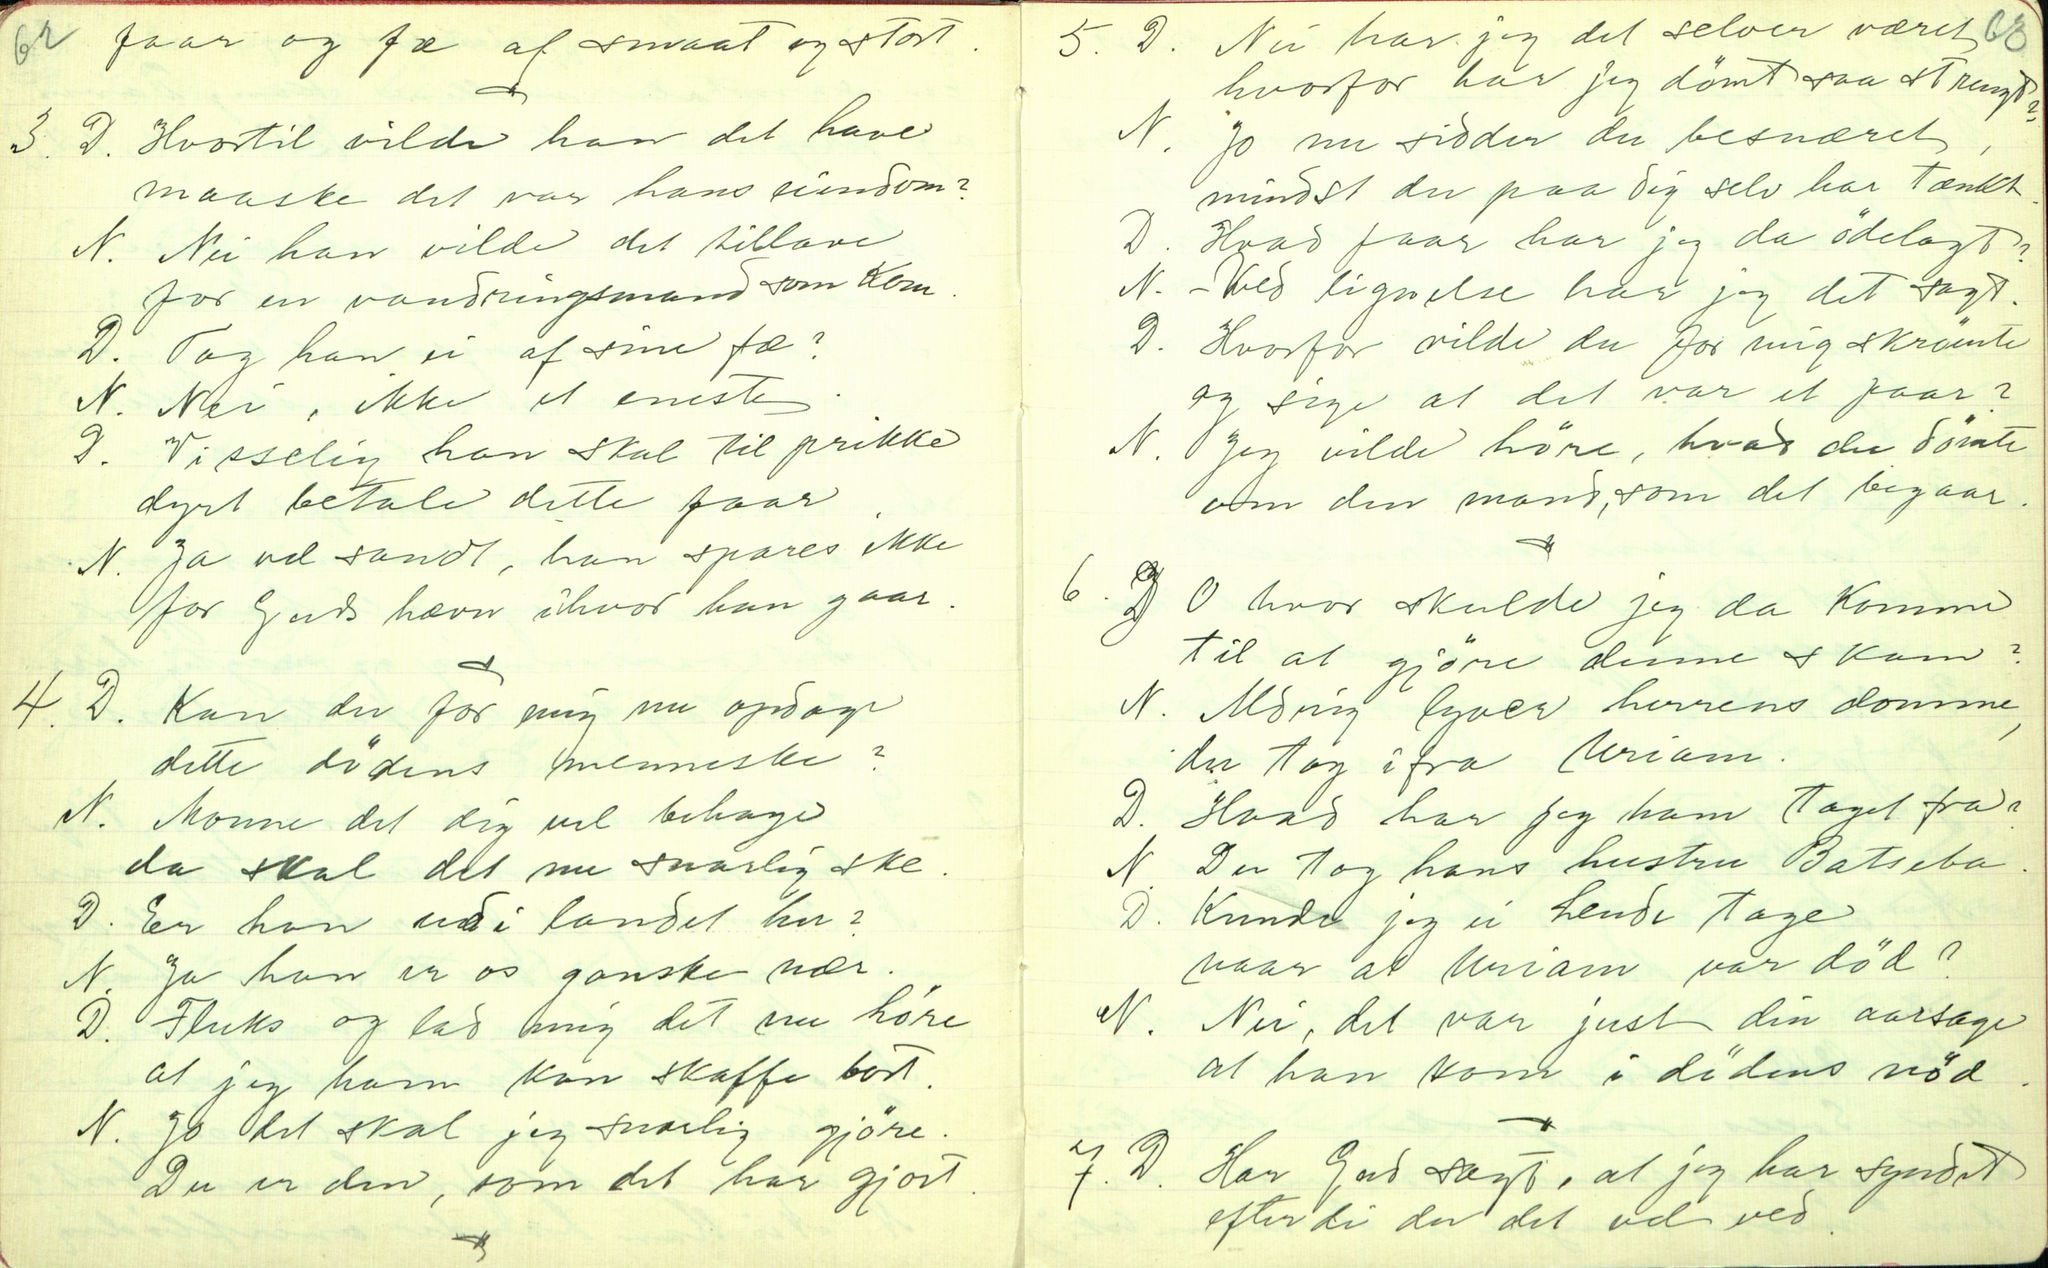 62
faar og fæ af smaat og stort.
3. D. Hvortil vilde han det have
maaske det var hans eiendom?
N. Nei han vilde det tillave
for en vandringsmand som kom.
D. Tog han ei af sine fæ?
N. Nei, ikke et eneste.
D. Visselig han skal til prikke
dyrt betale dette faar.
N. Ja vel sandt, han spares ikke
for Guds hævn ihvor han gaar.
4. D. Kan du för mig nu opdage
dette dödens menneske?
N. Monne det dig vel behage
da skal det nu snarlig ske.
D. Er han udi landet her?
N. Ja han er os ganske nær.
D. Fluks og lad mig det nu höre
at jeg ham kan skaffe bort.
N. Jo det skal jeg snarlig gjöre.
Du er den, som det har gjort.
63
5. D. Nei har jeg det selver været
hvorfor har jeg dömt saa strengt?
N. Jo nu sidder du besnæret,
mindst du paa dig selv har tænkt.
D. Hvad faar har jeg da ödelagt?
N. - Ved lignelse har jeg det sagt.
D. Hvorfor vilde du for mig skrömte
og sige at det var et faar?
N. Jeg vilde höre, hvad du dömte
om den mand, som det begaar.
6. D O hvor skulde jeg da komme
til at gjöre denne skam?
N. Aldrig lyver herrens domme,
du tog ifra Uriam.
D. Hvad har jeg ham taget fra?
N. Du tog hans hustru Batseba.
D. Kunde jeg ei hende tage
naar at Uriam var död?
N. Nei, det var just din aarsage
at han kom i dödens nöd.
7. D. Har Gud sagt, at jeg har syndet
efterdi du det vel ved.